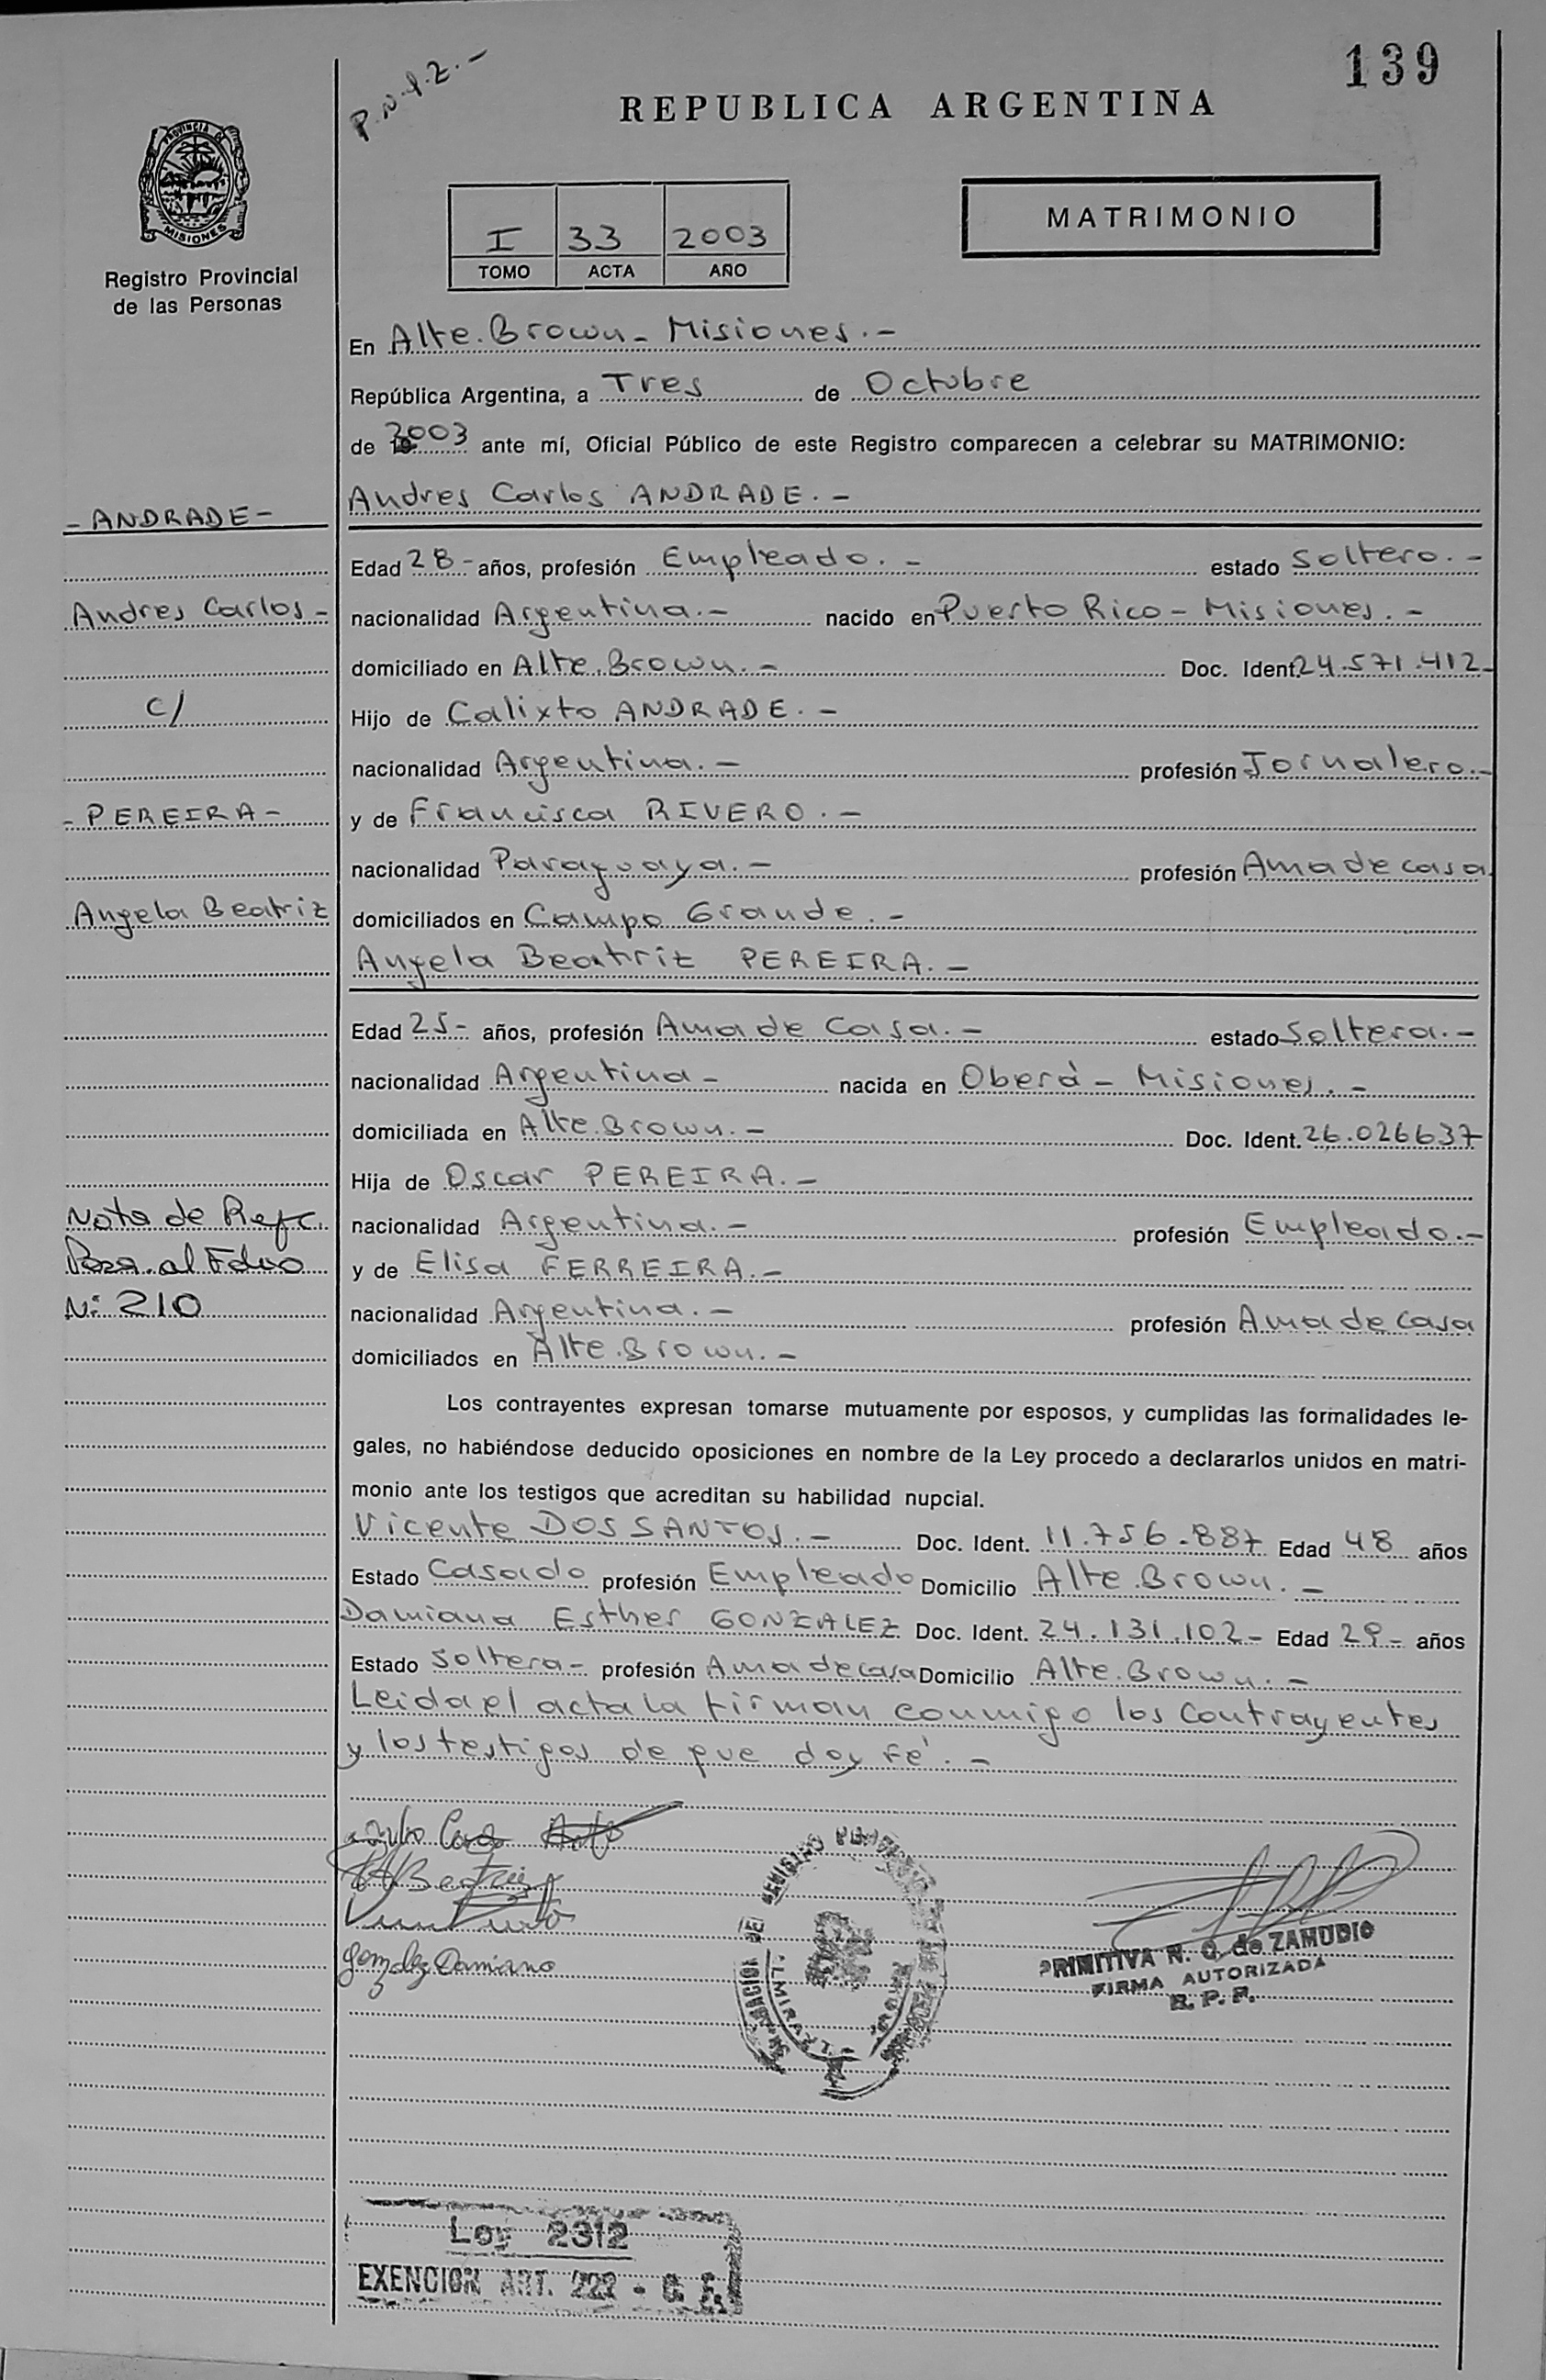 139
P.N.1.2.-
REPUBLICA ARGENTINA
PROVINCIA DE
MISIONES
Registro Provincial
de las Personas
I 33 2003
TOMO ACTA AÑO
MATRIMONIO
En Alte. Brown - Misiones.-
República Argentina, a Tres de Octubre
de 2003 ante mí, Oficial Público de este Registro comparecen a celebrar su MATRIMONIO:
Andres Carlos ANDRADE.-
- ANDRADE -
Edad 28- años, profesión Empleado.- estado Soltero.-
Andres Carlos -
nacionalidad Argentina.- nacido en Puerto Rico - Misiones.-
domiciliado en Alte. Brown.- Doc. Ident. 24.571.412-
c/
Hijo de Calixto ANDRADE.-
nacionalidad Argentina.- profesión Jornalero.-
- PEREIRA -
y de Francisca RIVERO.-
nacionalidad Paraguaya.- profesión Ama de casa
Angela Beatriz
domiciliados en Campo Grande.-
Angela Beatriz PEREIRA.-
Edad 25- años, profesión Ama de Casa.- estado Soltera.-
nacionalidad Argentina - nacida en Oberá - Misiones.-
domiciliada en Alte. Brown.- Doc. Ident. 26.026637
Hija de Oscar PEREIRA.-
Nota de Refc.
nacionalidad Argentina.- profesión Empleado.-
al Folio
y de Elisa FERREIRA.-
N: 210
nacionalidad Argentina.- profesión Ama de Casa
domiciliados en Alte. Brown.-
Los contrayentes expresan tomarse mutuamente por esposos, y cumplidas las formalidades le-
gales, no habiéndose deducido oposiciones en nombre de la Ley procedo a declararlos unidos en matri-
monio ante los testigos que acreditan su habilidad nupcial.
Vicente DOS SANTOS.- Doc. Ident. 11.756.887 Edad 48 años
Estado Casado profesión Empleado Domicilio Alte. Brown.-
Damiana Esther GONZALEZ Doc. Ident. 24.131.102- Edad 29- años
Estado Soltera - profesión Ama de casa Domicilio Alte. Brown.-
Leida el acta la firman conmigo los Contrayentes
y los testigos de que doy fé.-
Beatriz
Gonzalez Damiana
PRIMITIVA N. G. de ZAMUDIO
FIRMA AUTORIZADA
R. P. P.
Ley 2312
EXENCION ART. 222 - C. F.